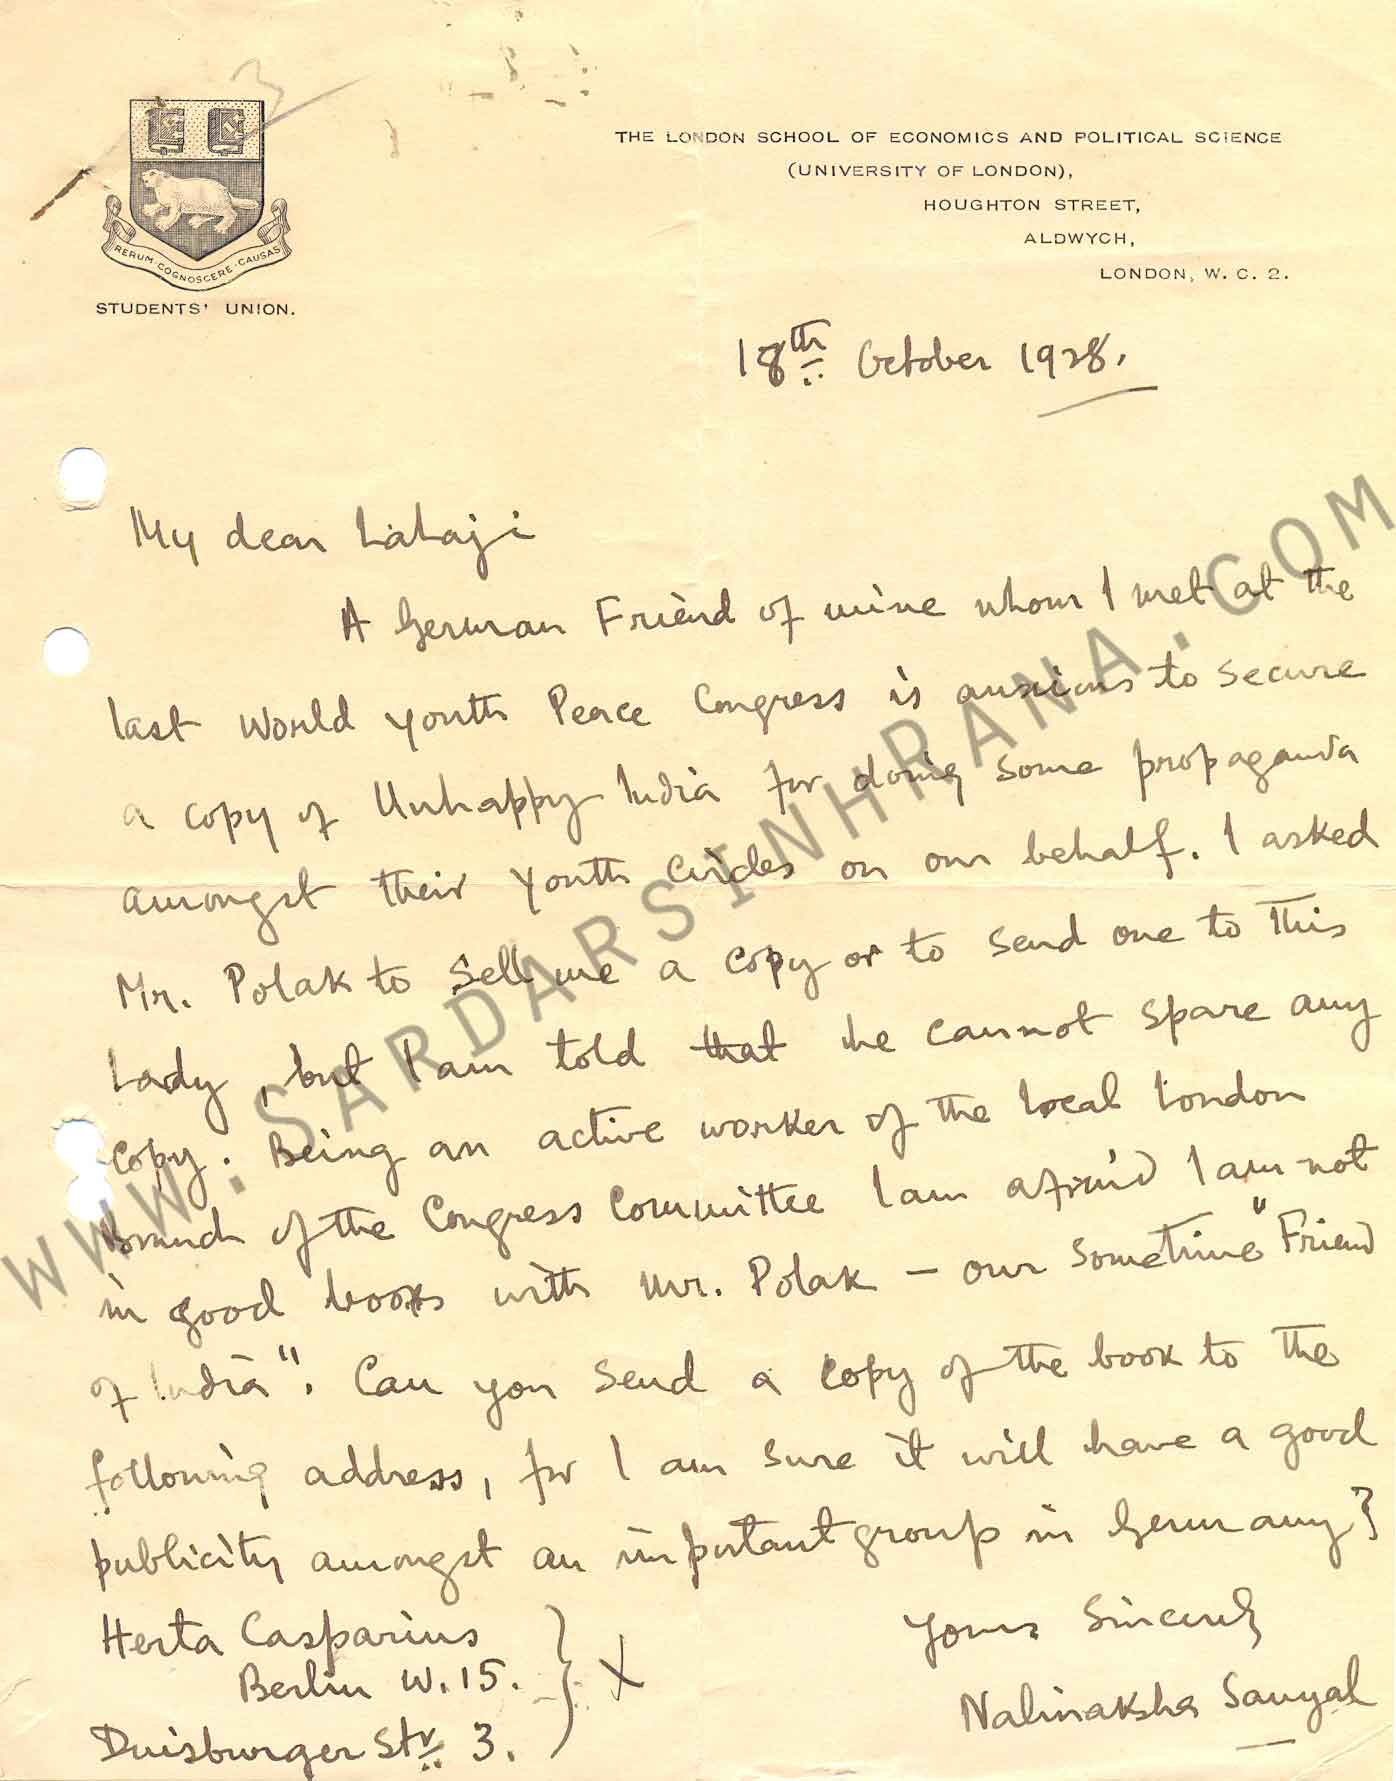 THE LONDON SCHOOL OF ECONOMICS AND POLITICAL SCIENCE
(UNIVERSITY OF LONDON),
HOUGHTON STREET,
ALDWYCH,
LONDON, W. C. 2.
RERUM·COGNOSCERE·CAUSAS
STUDENTS' UNION.
18th October 1928.
My dear Lalaji
A German Friend of mine whom I met at the
last World Youth Peace Congress is anxious to secure
a copy of Unhappy India for doing some propaganda
amongst their Youth Circles on our behalf. I asked
Mr. Polak to sell me a copy or to send one to this
Lady, but I am told that he cannot spare any
copy. Being an active worker of the local London
Branch of the Congress Committee I am afraid I am not
in good books with Mr. Polak – our sometime "Friend
of India". Can you send a copy of the book to the
following address, for I am sure it will have a good
publicity amongst an important group in Germany?
Herta Casparius
Berlin W. 15.
Duisburger Str. 3.
X
Yours Sincerely
Nalinaksha Sanyal
WWW.SARDARSINHRANA.COM